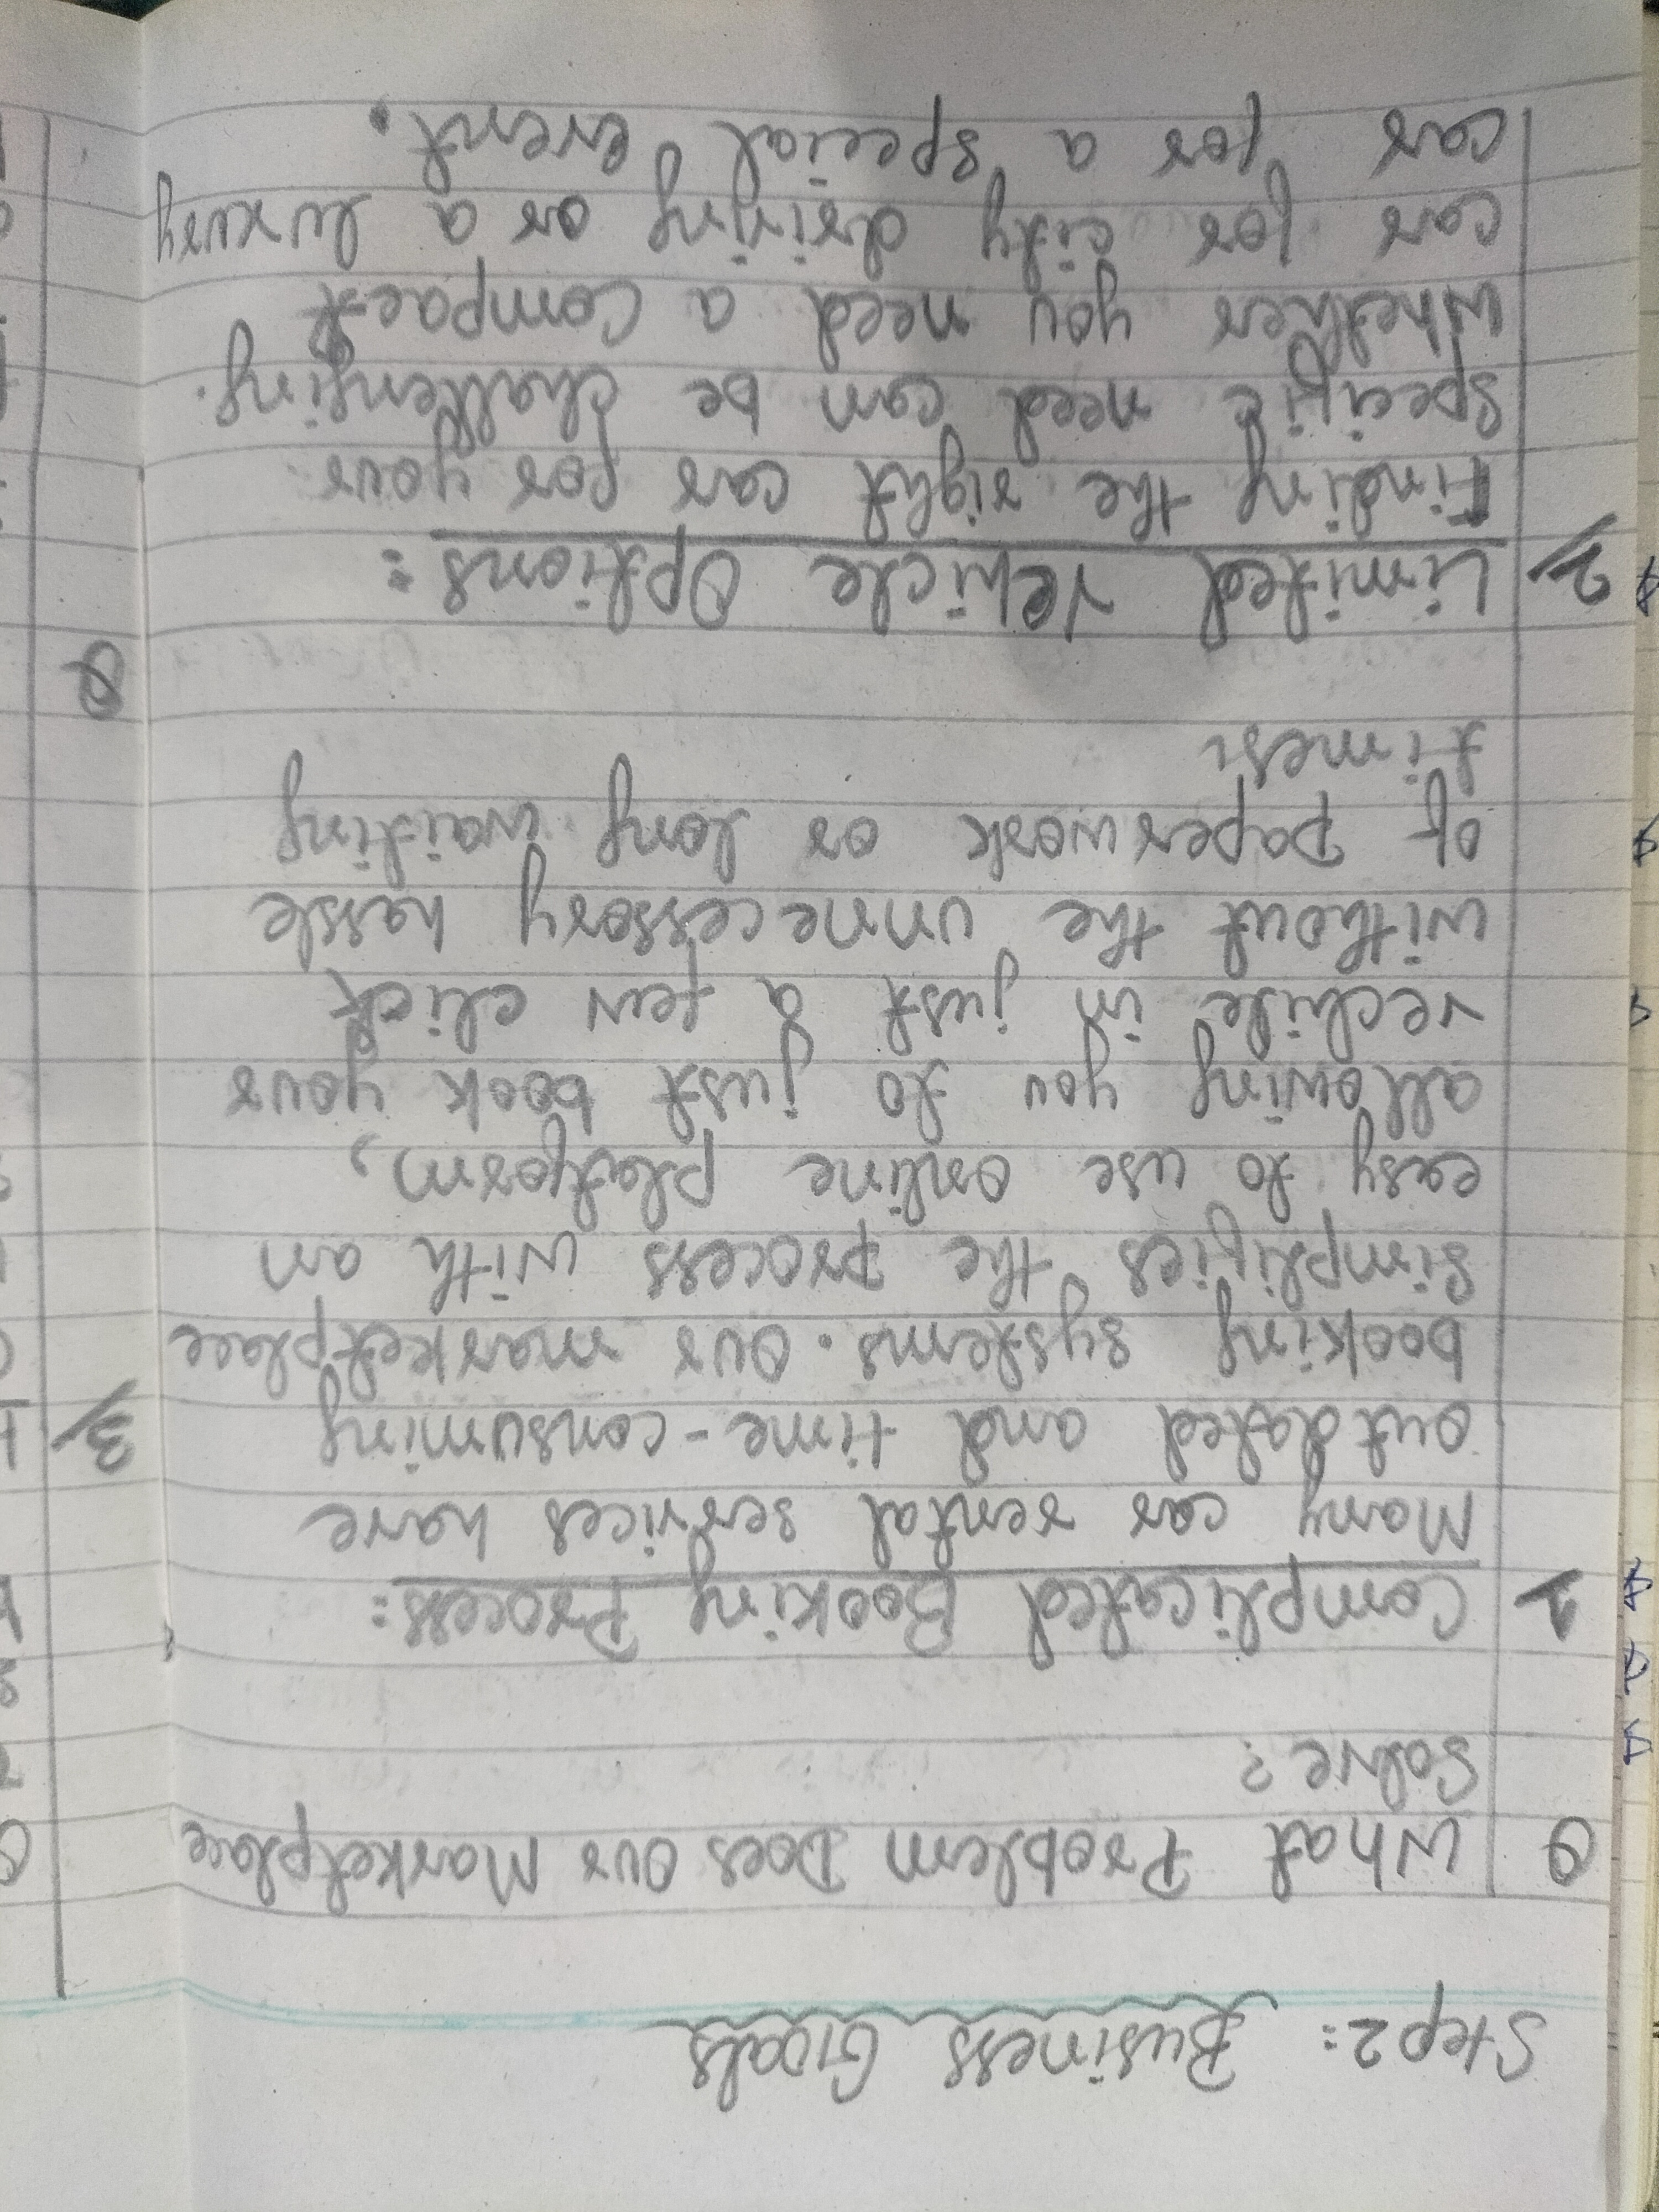 Step 2: Business Goals
Q What Problem Does Our Marketplace
Solve?
1 Complicated Booking Process:
Many car rental services have
outdated and time-consuming
booking systems. Our marketplace
Simplifies the process with an
easy to use online platform,
allowing you to just book your
vechile in just a few click
without the unnecessory hassle
of paperwork or long waiting
times.
2 Limited Vehicle Options:
Finding the right car for your
specific need can be challenging.
Whether you need a Compact
car for city driving or a luxury
car for a special event.
3
Q